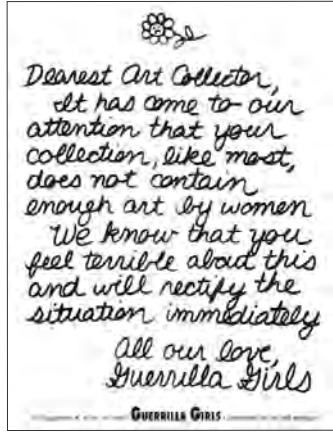 Dearest Art Collector,
It has come to our
attention that your
collection, like most,
does not contain
enough art by women
We know that you
feel terrible about this
and will rectify the
situation immediately
All our love,
Guerrilla Girls
GUERRILLA GIRLS